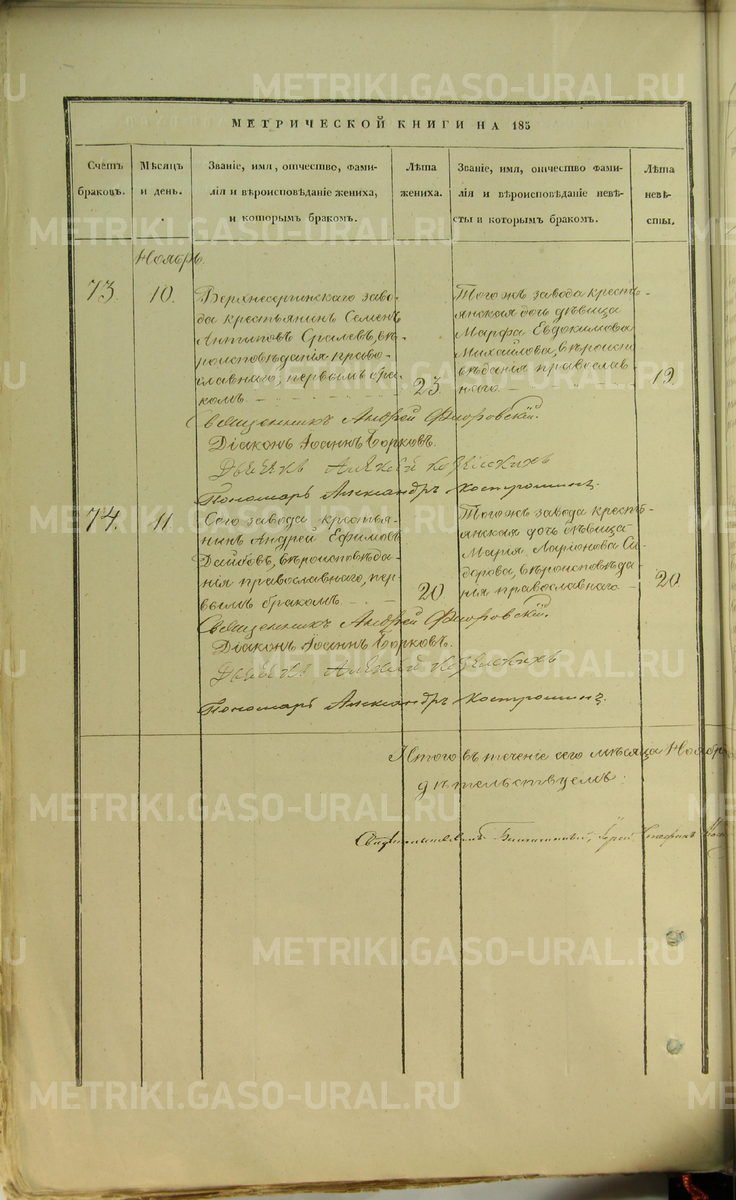 МЕТРИЧЕСКОЙ КНИГИ НА 185
Счетъ браковъ.
Мѣсяцъ и день.
Званіе, имя, отчество, фами-
лія и вѣроисповѣданіе жениха,
и которымъ бракомъ.
Лѣта жениха.
Званіе, имя, отчество фами-
лія и вѣроисповѣданіе невѣ-
сты и которымъ бракомъ.
Лѣта невѣ-
сты.
Ноябрь.
73.
10.
Верхнесергинскаго заво-
да крестьянинъ Семенъ
Антиповъ вѣ-
роисповѣданія право-
славнаго, первымъ бра-
комъ.
23
Того жъ завода кресть-
янская дочь дѣвица
Марфа Евдокимова
Михайлова, вѣроиспо-
вѣданія православ-
наго.
19
Священникъ Андрей Флоровскій.
Діаконъ Іоаннъ Борковъ.
Дьячекъ Алексѣй
Пономарь Александръ Костромин
74.
11.
Сего завода крестья-
нинъ Андрей Ефимовъ
вѣроисповѣда-
нія православнаго, пер-
вымъ бракомъ
20
Того жъ завода кресть-
янская дочь дѣвица
Марія Ларіонова Си-
дорова, вѣроисповѣда
нія православнаго
20
Священникъ Андрей Флоровскій.
Діаконъ Іоаннъ Борковъ.
Дьячекъ Алексѣй
Пономарь Александръ Костромин
Итого въ теченіе сего мѣсяца Нояб
METRIKI.GASO-URAL.RU